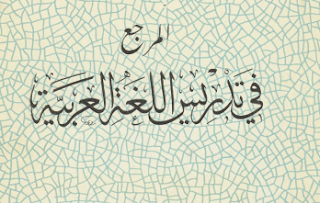 المرجع
في تدريس اللغة العربية